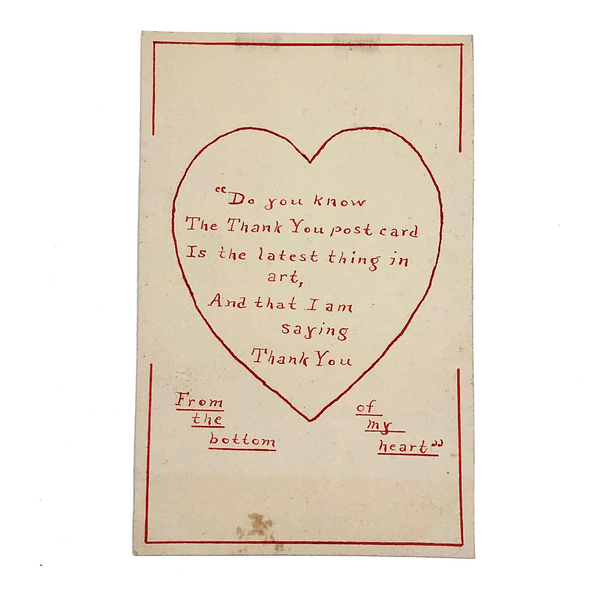 “Do you know
The Thank You post card
Is the latest thing in
art,
And that I am
saying
Thank You
From
the
bottom
of
my
heart”